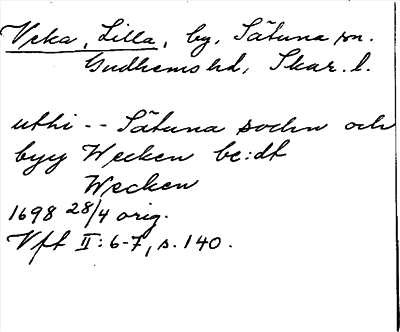 Veka, Lilla, by, Sätuna sn.
Gudhems hd, Skar. l.
uthi -- Sätuna sochn och
byy Wecken be:dt
Wecken
1698 28/4 orig.
Vft II: 6-7, s. 140.